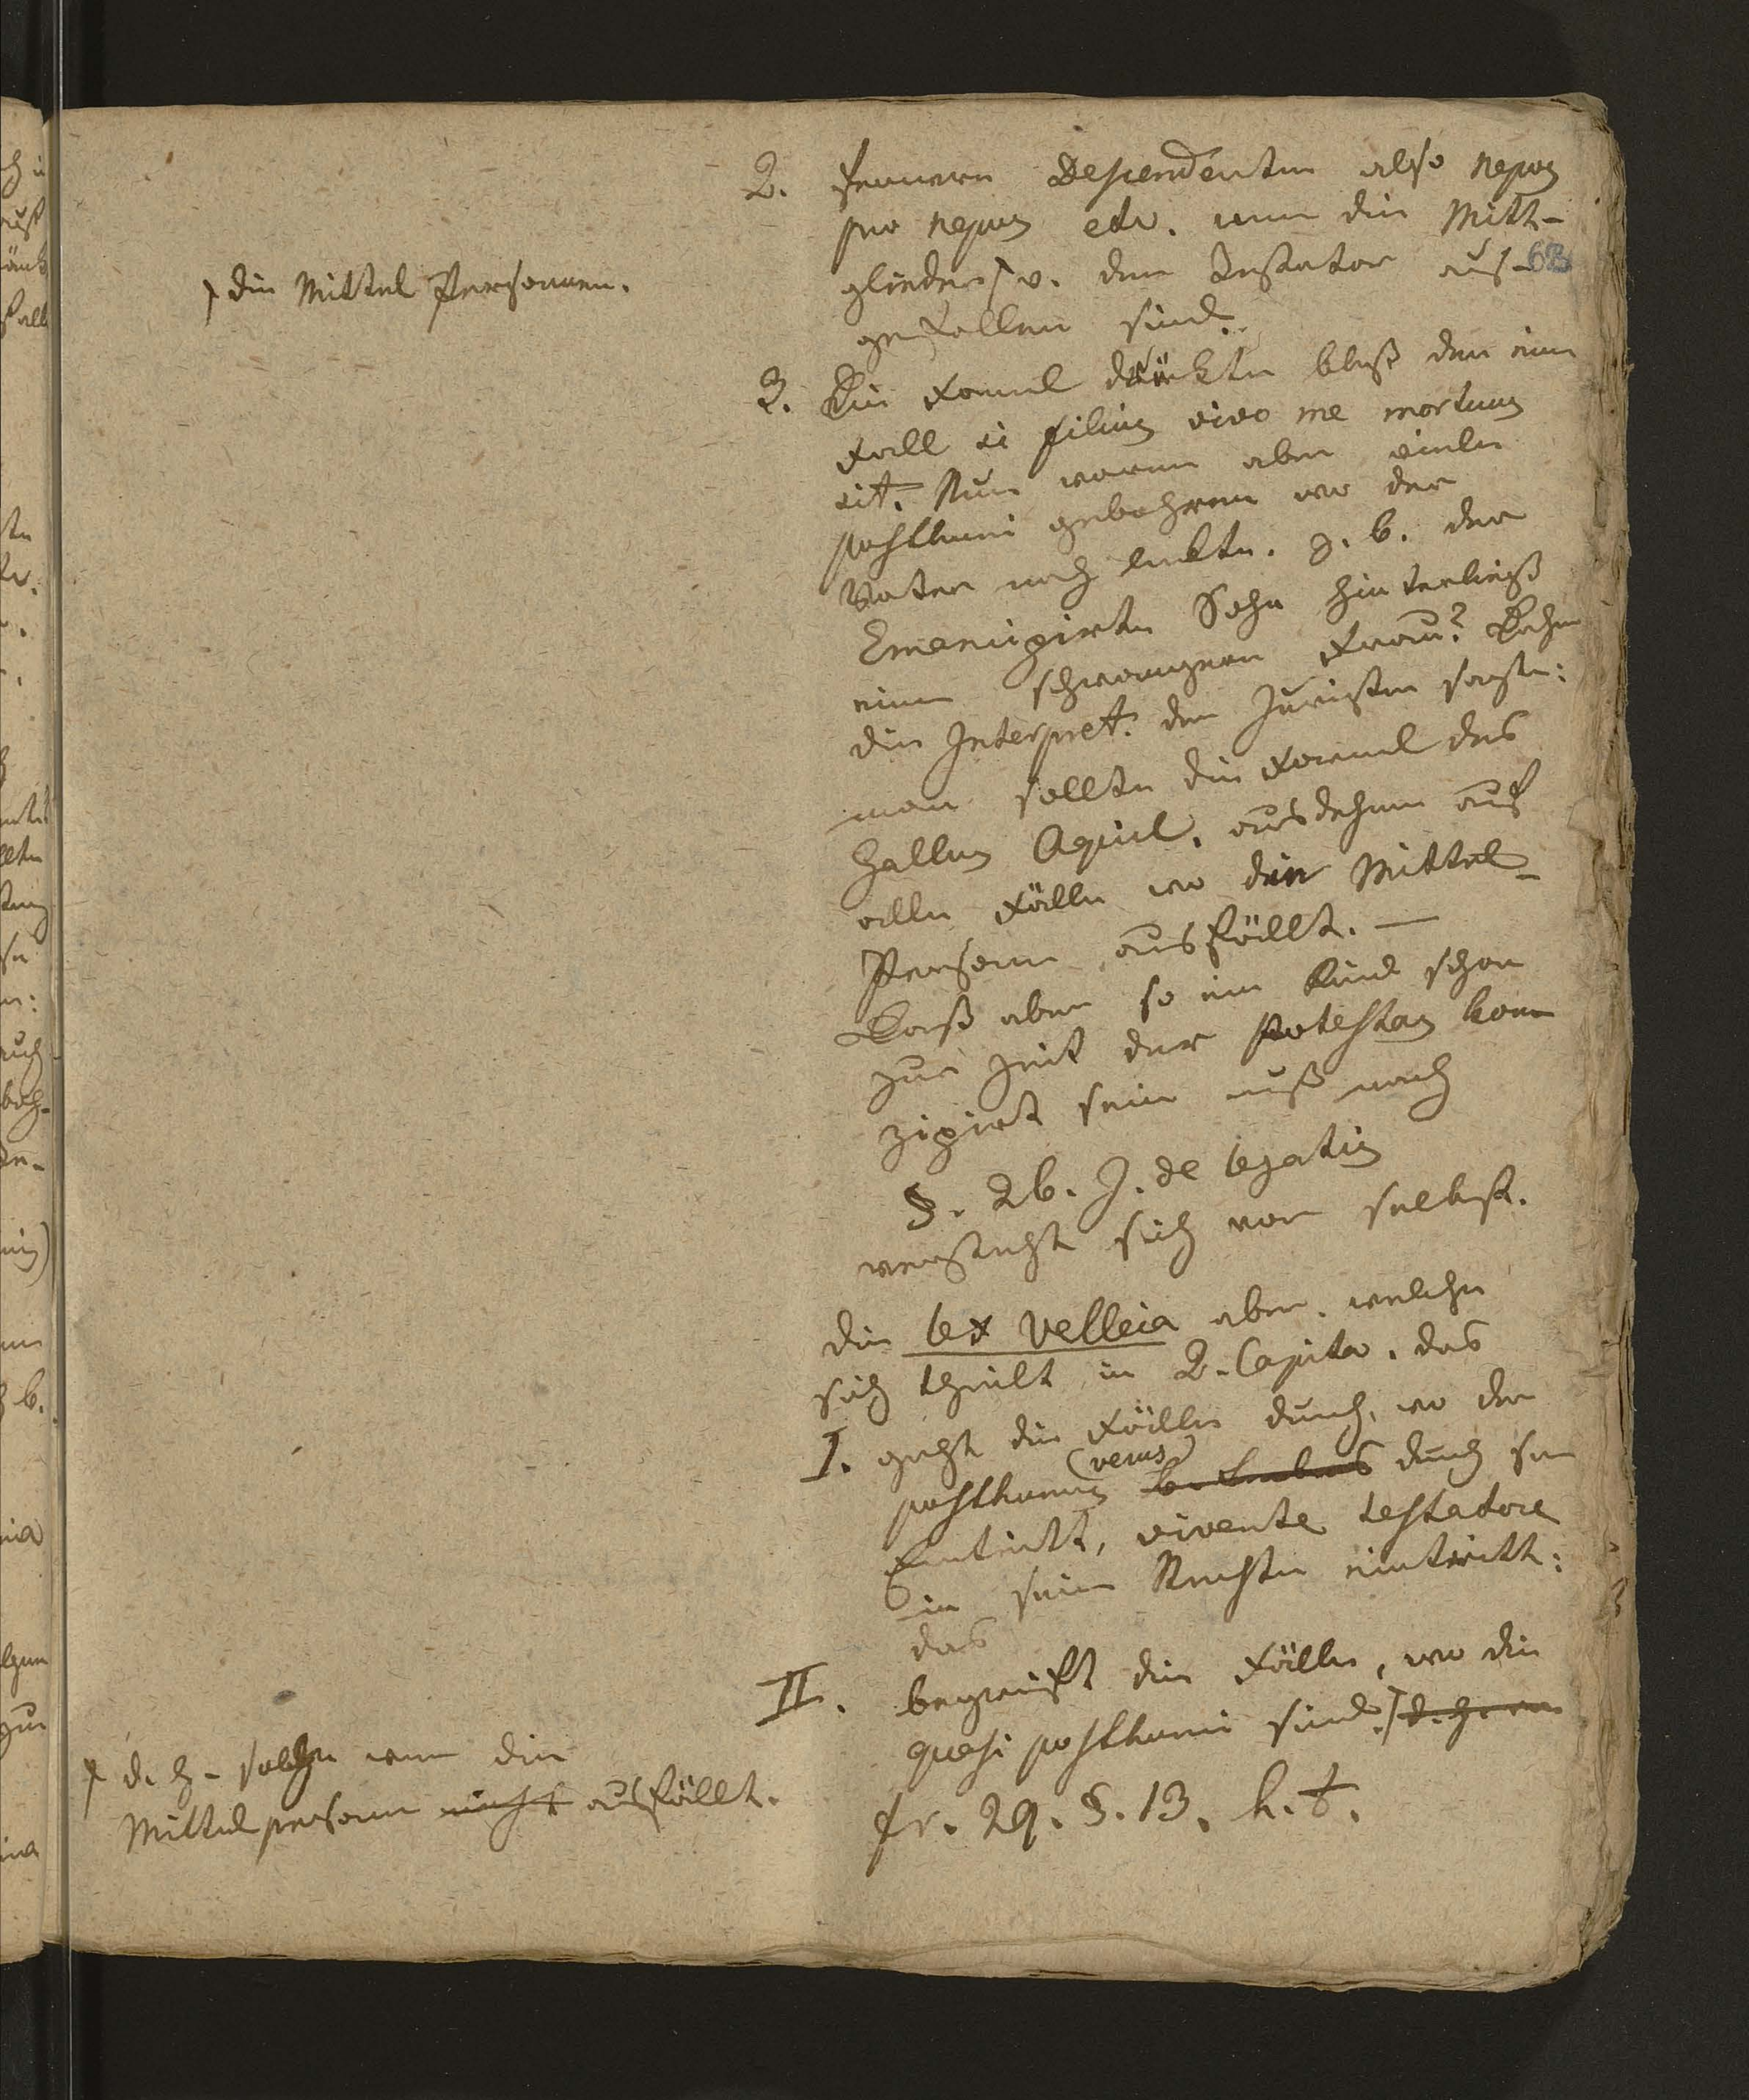 2. fernern Descendenten also nepos
pro nepos etc. wenn die Mitt-
glieder / v. dem Testator aus-
68
gefallen sind.
/ die Mittel Personen.
3. Die Formel deckte bloß den einen
Fall si filius vivo me mortuus
sit. Nun waren aber viele
posthumi gebohren wo der
Vater noch lebte. z. b. der
Emancipirte Sohn hinterließ
eine schwangere Frau?
die Interpret. der Juristen sagte:
man sollte die Formel des
Gallus Aquil. ausdehnen auf
alle Fälle wo die Mittel-
Person ausfällt. —
Daß aber so ein Kind schon
zur Zeit der Potestas kon
zipirt sein muß nach
§. 26. J. de legatis
versteht sich von selbst.
die lex Velleia aber, welche
sich theilt in 2. Capita. das
I. geht die Fälle durch, wo der
(verus)
posthumus durch sn
Eintritt, vivente testatore
in seine Rechte eintritt:
das
II. begreift die Fälle, wo die
quasi posthumi sind. / d. h. wo
/ d. h. solche wenn die
Mittelperson nicht ausfällt.
fr. 29. §. 13. h. t.